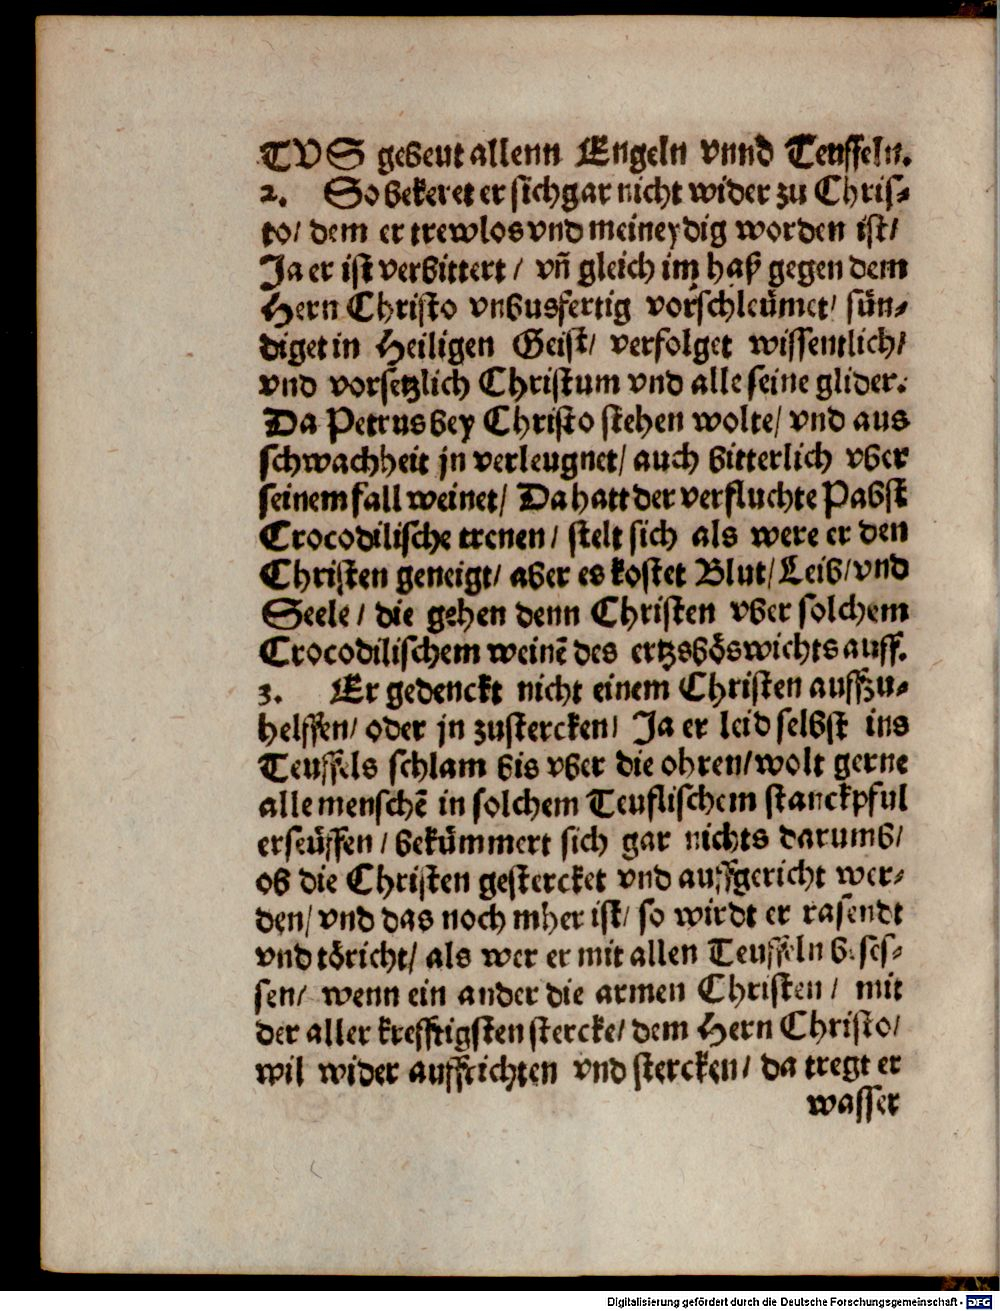 TVS gebeut allenn Engeln vnnd Teuffeln.
2. So bekeret er sich gar nicht wider zu Chris-
to/ dem er trewlos vnd meineydig worden ist/
Ja er ist verbittert / vñ gleich im haß gegen dem
Hern Christo vnbusfertig vorschleümet/ sün-
diget in Heiligen Geist/ verfolget wissentlich/
vnd vorsetzlich Christum vnd alle seine glider.
Da Petrus bey Christo stehen wolte/ vnd aus
schwachheit jn verleugnet/ auch bitterlich vber
seinem fall weinet/ Da hatt der verfluchte Pabst
Crocodilische trenen / stelt sich als were er den
Christen geneigt/ aber es kostet Blut/ Leib/ vnd
Seele / die gehen denn Christen vber solchem
Crocodilischem weinē des ertzsböswichts auff.
3. Er gedenckt nicht einem Christen auffzu-
helffen/ oder jn zustercken/ Ja er leid selbst ins
Teuffels schlam bis vber die ohren/ wolt gerne
alle menschē in solchem Teuflischem stanckpful
erseüffen / bekümmert sich gar nichts darumb/
ob die Christen gestercket vnd auffgericht wer-
den/ vnd das noch mher ist/ so wirdt er rasendt
vnd töricht/ als wer er mit allen Teuffeln beses-
sen/ wenn ein ander die armen Christen / mit
der aller krefftigsten stercke/ dem Hern Christo/
wil wider auffrichten vnd stercken/ da tregt er
wasser
Digitalisierung gefördert durch die Deutsche Forschungsgemeinschaft - DFG